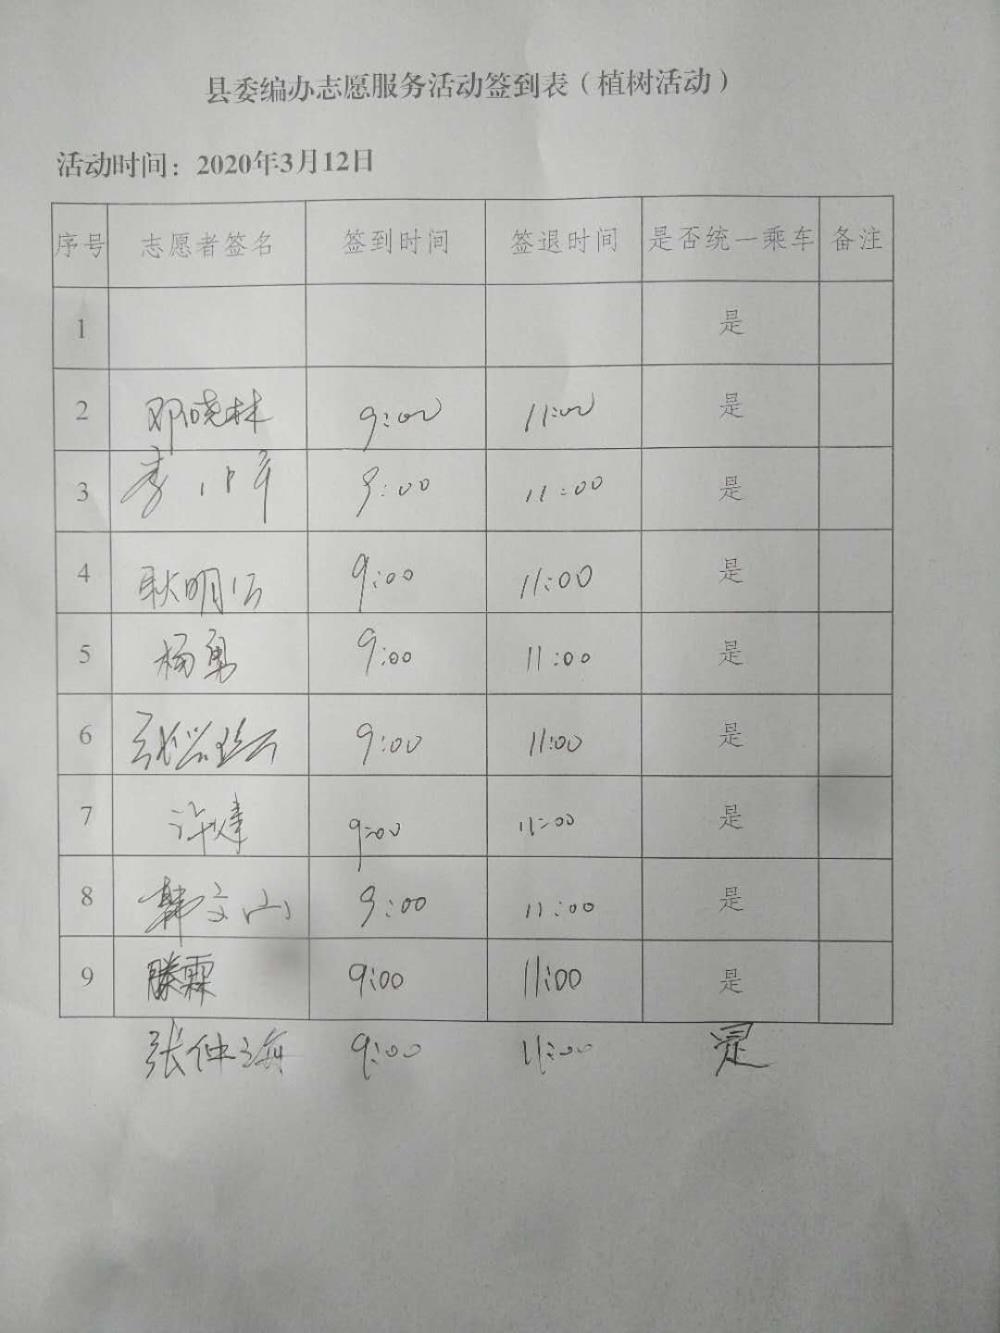 县委编办志愿服务活动签到表（植树活动）
活动时间：2020年3月12日
序号 志愿者签名 签到时间 签退时间 是否统一乘车 备注
1 是
2 邓晓林 9:00 11:00 是
3 9:00 11:00 是
4 耿明 9:00 11:00 是
5 杨勇 9:00 11:00 是
6 9:00 11:00 是
7 许建 9:00 11:00 是
8 韩文山 9:00 11:00 是
9 滕霖 9:00 11:00 是
张仲海 9:00 11:00 是